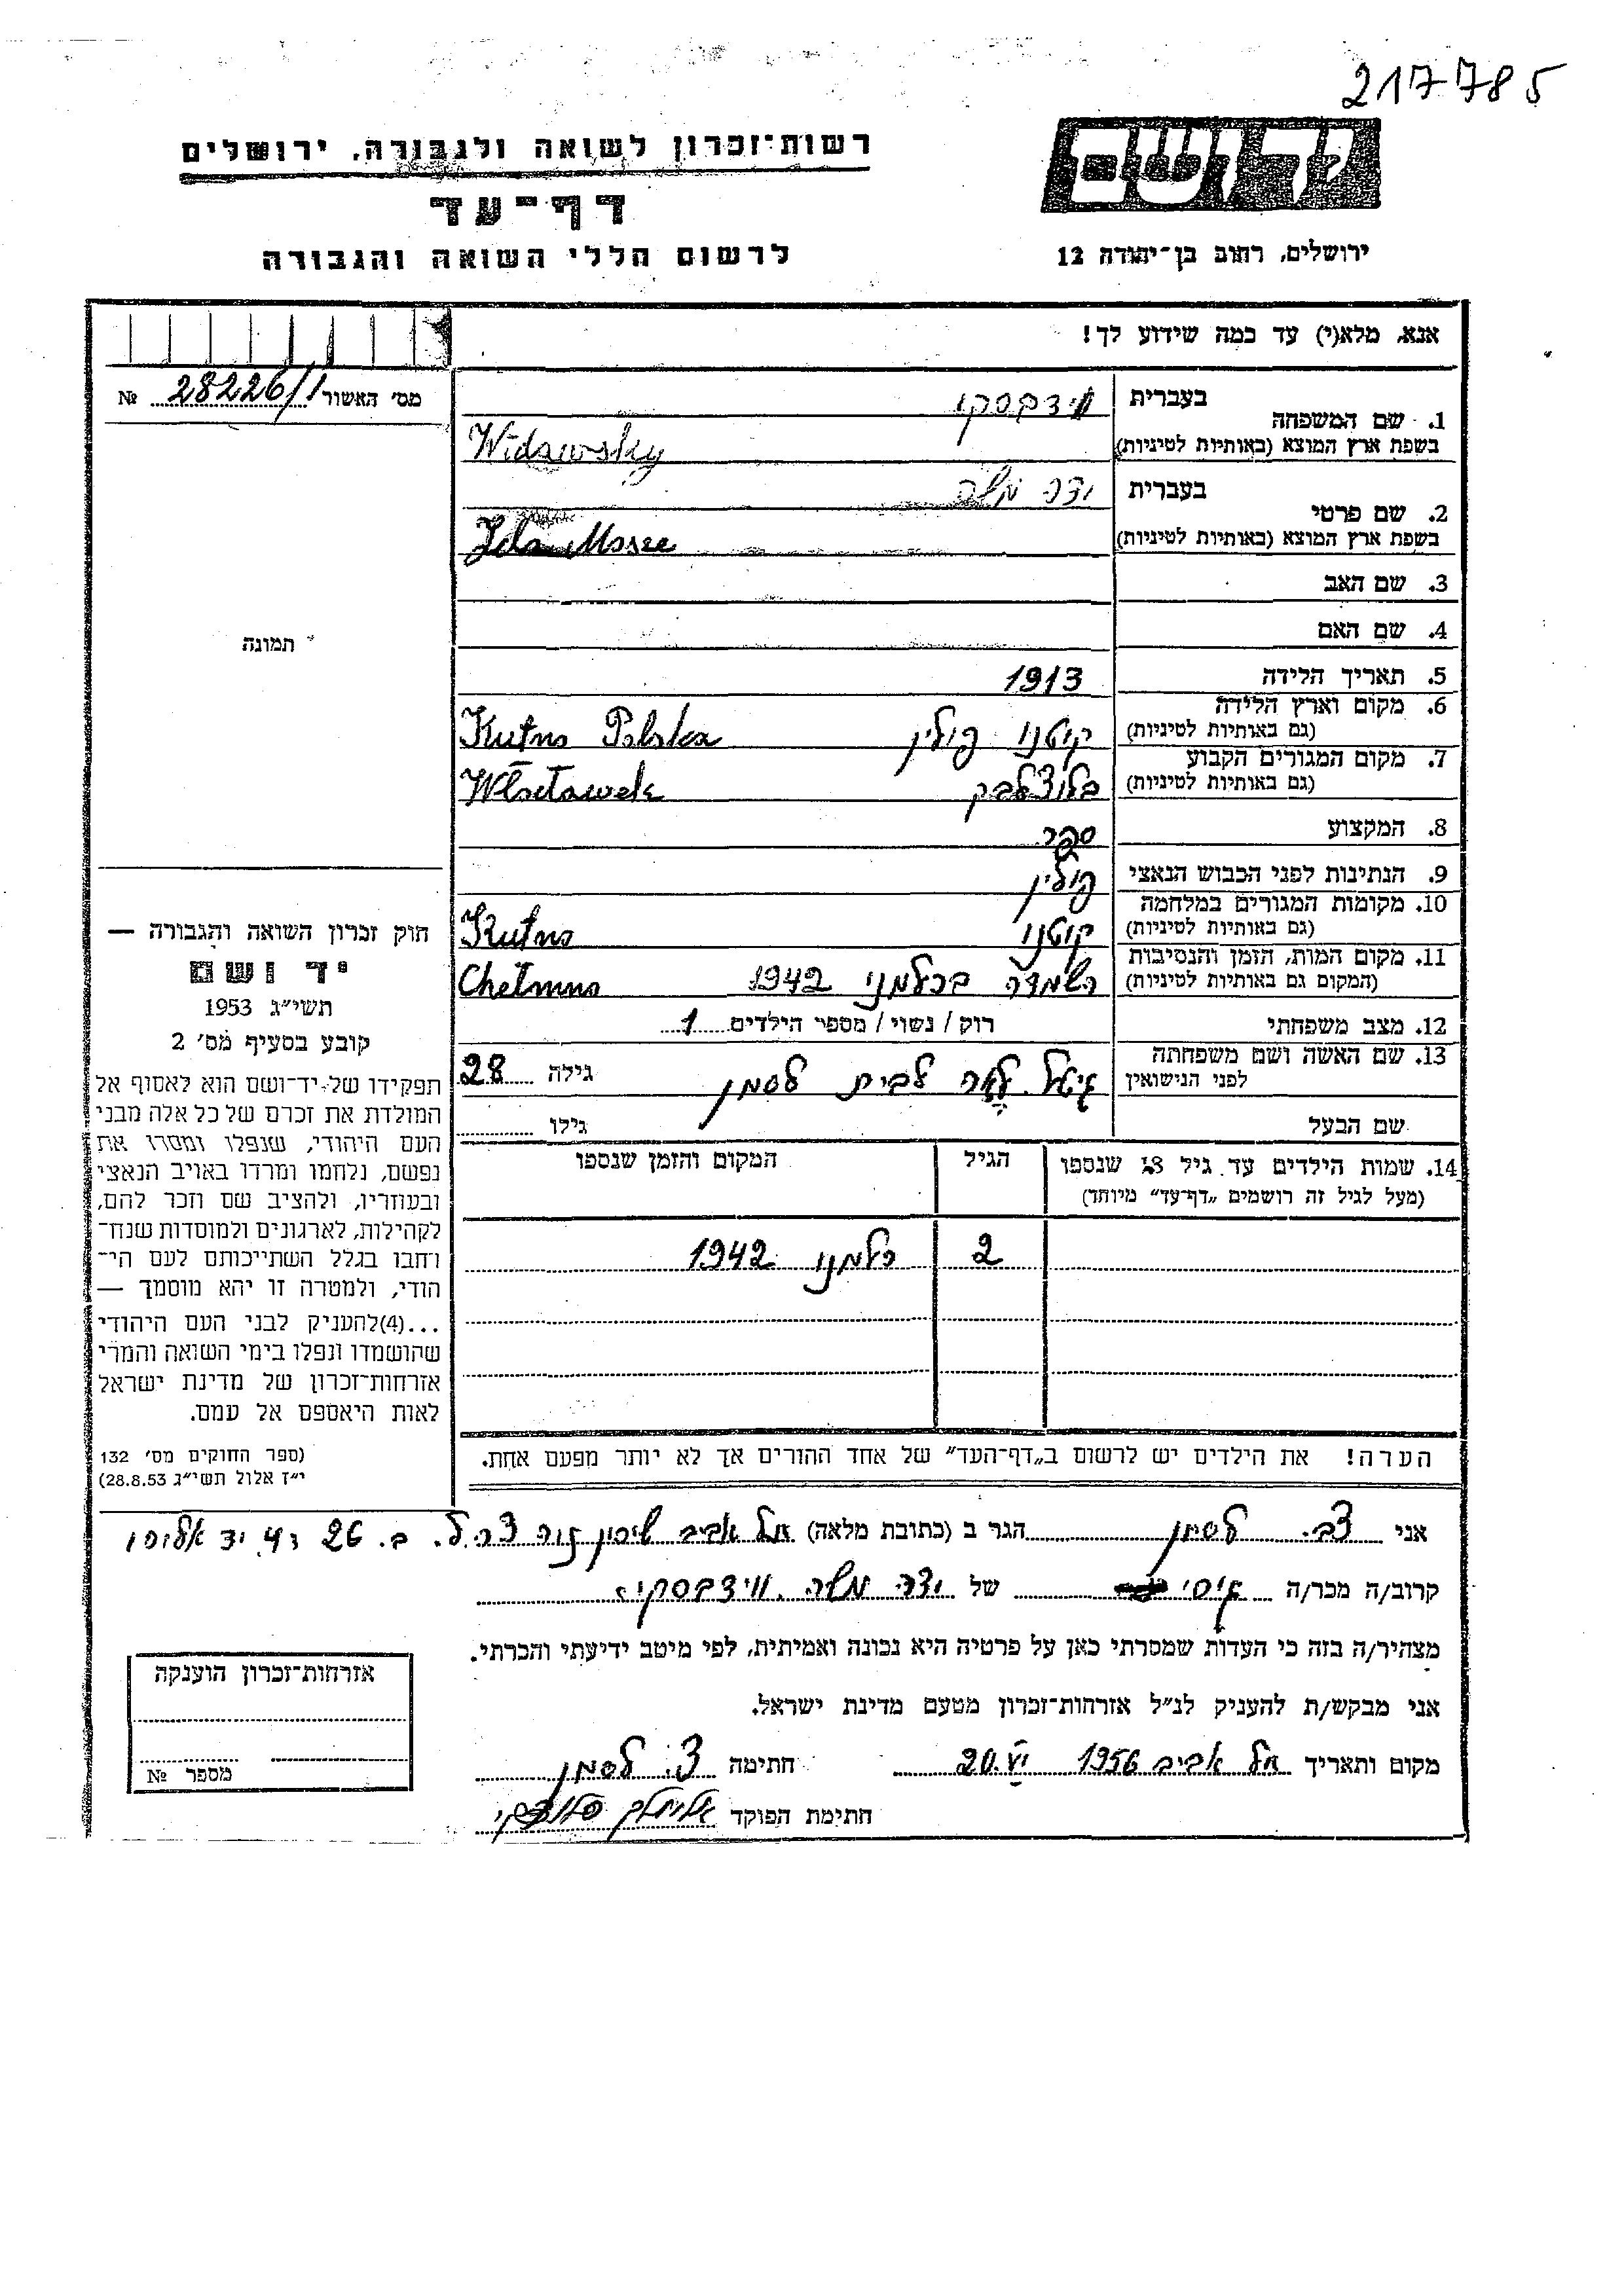 217785
רשות־זכרון לשואה ולגבורה, ירושלים
דף־עד
לרשום חללי השואה והגבורה
ידושם
ירושלים, רחוב בן־יהודה 12
אנא, מלא(י) עד כמה שידוע לך!
מס׳ האשור 28226/1 №
1. שם המשפחה בעברית ווידבסקי
בשפת ארץ המוצא (באותיות לטיניות) Widawsky
2. שם פרטי בעברית משה
בשפת ארץ המוצא (באותיות לטיניות)
3. שם האב
4. שם האם
תמונה
5. תאריך הלידה 1913
6. מקום וארץ הלידה קוטנו פולין Kutno Polska
(גם באותיות לטיניות)
7. מקום המגורים הקבוע
(גם באותיות לטיניות) Włocławek
8. המקצוע ספר
9. הנתינות לפני הכבוש הנאצי פולין
10. מקומות המגורים במלחמה
(גם באותיות לטיניות) קוטנו Kutno
11. מקום המות, הזמן והנסיבות
(המקום גם באותיות לטיניות) השמדה בכלמנו 1942 Chełmno
12. מצב משפחתי רוק / נשוי / מספר הילדים 1
13. שם האשה ושם משפחתה
לפני הנישואין לאה לבית לסמן גילה 28
שם הבעל גילו
14. שמות הילדים עד גיל 18 שנספו הגיל המקום והזמן שנספו
(מעל לגיל זה רושמים „דף־עד״ מיוחד)
2 כלמנו 1942
הערה! את הילדים יש לרשום ב„דף־העד״ של אחד ההורים אך לא יותר מפעם אחת.
חוק זכרון השואה והגבורה —
יד ושם
תשי״ג 1953
קובע בסעיף מס׳ 2
תפקידו של יד־ושם הוא לאסוף אל
המולדת את זכרם של כל אלה מבני
העם היהודי, שנפלו ומסרו את
נפשם, נלחמו ומרדו באויב הנאצי
ובעוזריו, ולהציב שם וזכר להם,
לקהילות, לארגונים ולמוסדות שנח־
רחבו בגלל השתייכותם לעם הי־
הודי, ולמטרה זו יהא מוסמך —
...(4)להעניק לבני העם היהודי
שהושמדו ונפלו בימי השואה והמרי
אזרחות־זכרון של מדינת ישראל
לאות היאספם אל עמם.
(ספר החוקים מס׳ 132
י״ז אלול תשי״ג 28.8.53)
אני צבי לסמן הגר ב (כתובת מלאה) תל אביב שיכון ב. 26 יד אליהו
קרוב/ה מכר/ה גיסי של משה ווידבסקי
מצהיר/ה בזה כי העדות שמסרתי כאן על פרטיה היא נכונה ואמיתית, לפי מיטב ידיעתי והכרתי.
אני מבקש/ת להעניק לנ״ל אזרחות־זכרון מטעם מדינת ישראל.
מקום ותאריך תל אביב 1956 חתימה צ. לסמן
חתימת הפוקד
אזרחות־זכרון הוענקה
מספר №